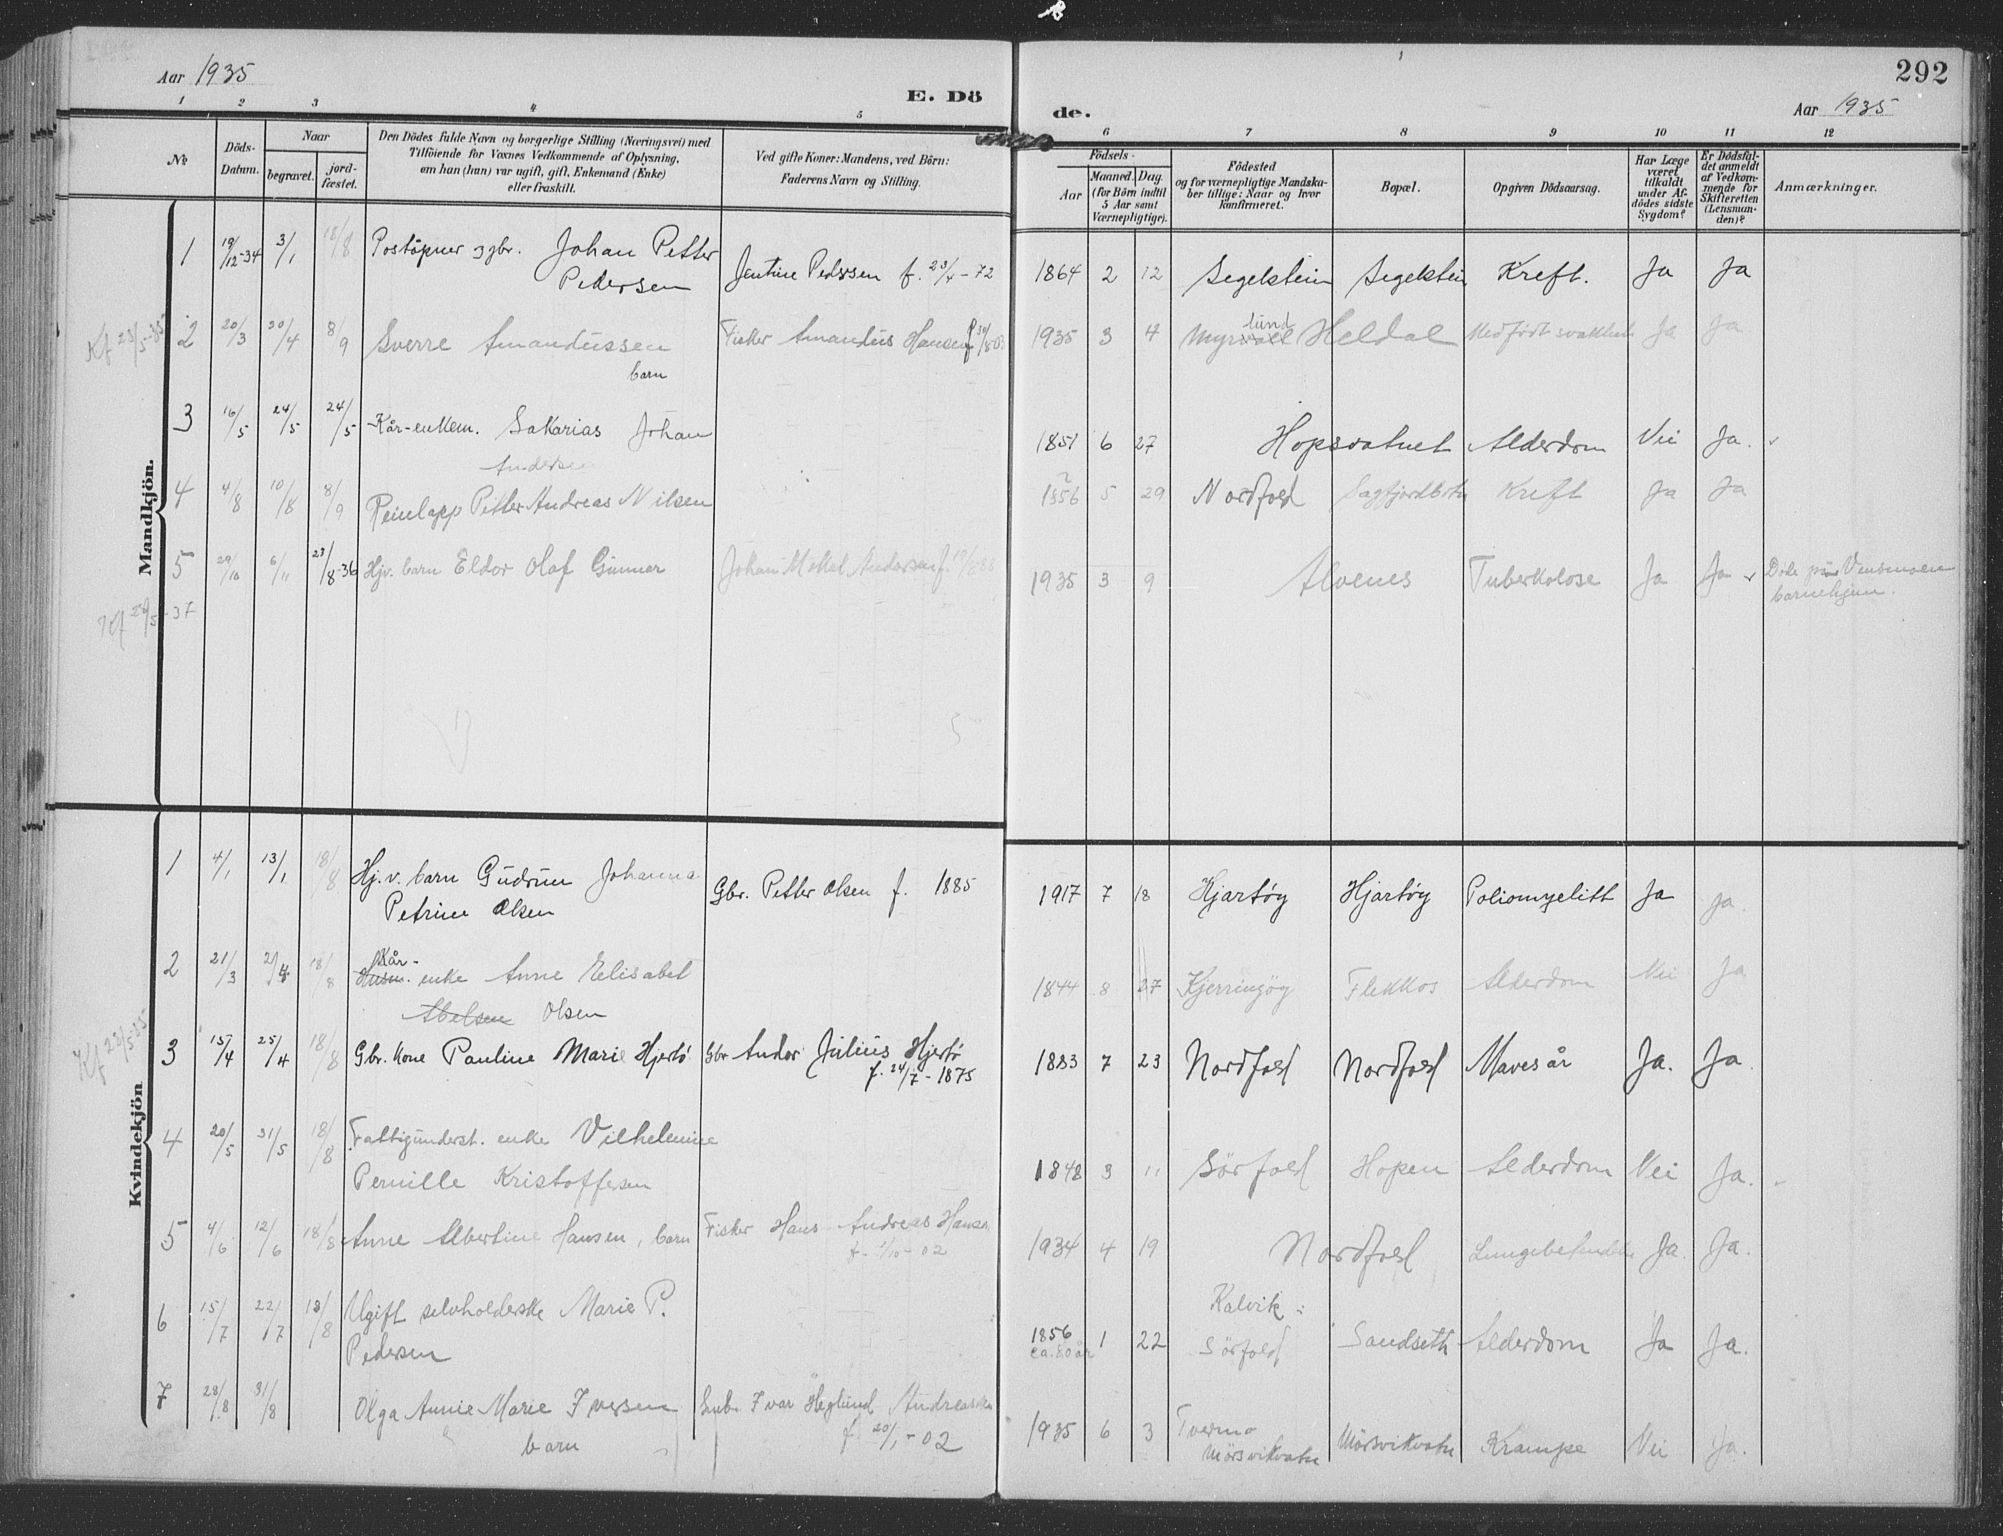 Aar 1935
E. Dö
de.
292
Aar 1935
1 2 3 4 5
6 7 8 9 10 11 12
No
Döds-Datum.
Naar
begravet.
jord-fæstet.
Den Dödes fulde Navn og borgerlige Stilling (Næringsvei) med
Tilföiende for Voxnes Vedkommende af Oplysning,
om han (hun) var ugift, gift, Enkemand (Enke)
eller fraskilt.
Ved gifte Koner: Mandens, ved Börn:
Faderens Navn og Stilling.
Födsels-
Aar
Maaned. Dag.
(for Börn indtil
5 Aar samt
Værnepligtige).
Födested
og for værnepligtige Mandska-
ber tillige: Naar og hvor
konfirmeret.
Bopæl.
Opgiven Dödsaarsag.
Har Læge
været
tilkaldt
under Af-
dödes sidste
Sygdom?
Er Dödsfal-
det anmeldt
af Vedkom-
mende for
Skifteretten
(Lensman-
den)?
Anmærkninger.
Mandkjön.
1 19/12-34 3/1 18/8 Postöpner og gbr. Johan Petter
Pedersen
Jentine Pedersen f. 23/4-72
1864 2 12 Segelstein Segelstein Kreft. Ja Ja
Kf 23/5-35
2 20/3 20/4 8/9 Sverre Amandussen
barn
Fisker Amandus Hansen
1935 3 4 Myrvoll lund Heldal Medfödt svakhet Ja Ja
3 16/5 24/5 24/5 Kår-enkem. Sakarias Johan
Andersen
1851 6 27 Hopsvatnet Alderdom Nei Ja.
4 4/8 10/8 8/9 Reinlapp Petter Andreas Nilsen
1856 5 29 Nordfold Sagfjordbotn Kreft Ja Ja
5 29/10 6/11 23/8-36 Hjv. barn Eldor Olaf Gunnar
Johan Mikal Andersen f.
1935 3 9 Alvenes Tuberkolose Ja Ja Döde på Vensmoen
barnehjem.
Kf 29/5-37
Kvindekjön
1 4/1 13/1 18/8 Hj. v. barn Gudrun Johanna
Petrine Olsen
Gbr. Petter Olsen f. 1885
1917 7 18 Hjartöy Hjartöy Poliomyelitt Ja Ja.
2 21/3 2/4 18/8 Husm. Kår-enke Anne Elisabet
Abelsen Olsen
1844 8 27 Kjerringöy Flekkos Alderdom Nei Ja
Kf 23/5-35
3 15/4 25/4 18/8 Gbr. kone Pauline Marie Hjertö
Gbr Andor Julius Hjertö
f. 24/7-1875
1883 7 23 Nordfold Nordfold Mavesår Ja. Ja
4 20/5 31/5 18/8 Fattigunderst. enke Vilhelmine
Pernille Kristoffersen
1848 3 11 Sörfold Hopen Alderdom Nei Ja.
5 4/6 12/6 18/8 Anne Albertine Hansen, barn
Fisker Hans Andreas Hansen
1934 4 19 Nordfold Ja. Ja.
6 15/7 22/7 18/8 Ugift selvholderske Marie P.
Pedersen
1856 ca. 80 år 1 22 Kalvik:
Sörfold Sandseth Alderdom Ja Ja.
7 28/8 31/8 Olga Annie Marie Iversen
barn
Ivar Heglund Andreassen
f. 20/1-02
1935 6 3 Tvermo
Mörsvikvatn Mörsvikvatn Krampe Nei Ja.